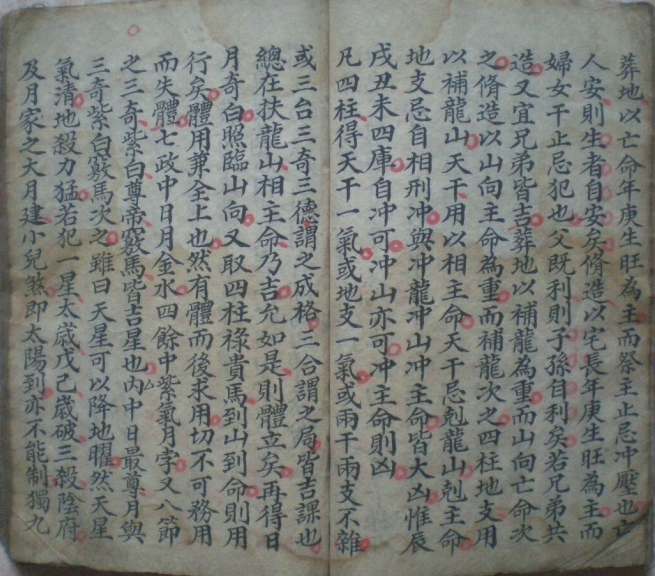 葬地以亡命年庚生旺為主而祭主止忌冲壓也亡
人安則生者自安矣脩造以宅長年庚生旺為主而
婦女干止忌犯也父既利則子孫自利矣若兄弟共
造又宜兄弟皆吉葬地以補龍為重而山向亡命次
之脩造以山向主命為重而補龍次之四柱地支用
以補龍山天干用以相主命天干忌剋龍山剋主命
地支忌自相刑冲與冲龍冲山冲主命皆大凶惟辰
戌丑未四庫自冲可冲山亦可冲主命則凶
凡四柱得天干一氣或地支一氣或兩干兩支不雜
或三台三奇三德謂之成格三合謂之局皆吉課也
總在扶龍山相主命乃吉允如是則體立矣再得日
月奇白照臨山向又取四柱祿貴馬到山到命則用
行矣體用兼全上也然有體而後求用切不可務用
而失體七政中日月金水四餘中紫氣月孛又八節
之三奇紫白尊帝竅馬皆吉星也内中日最尊月與
三奇紫白竅馬次之雖曰天星可以降地曜然天星
氣清地殺力猛若犯一星太歲戊己歲破三殺陰府
及月家之大月建小兒煞即太陽到亦不能制獨九